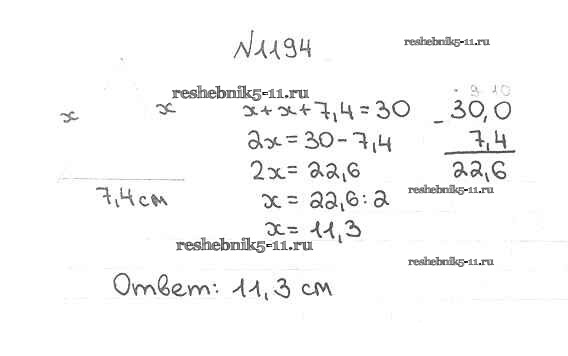 N1194
reshebnik5-11.ru
reshebnik5-11.ru
9 10
x x x+x+7,4=30 - 30,0
2x = 30-7,4 7,4
2x = 22,6 22,6
7,4 см x = 22,6:2 reshebnik5-11.ru
x = 11,3
reshebnik5-11.ru
reshebnik5-11.ru
Ответ: 11,3 см